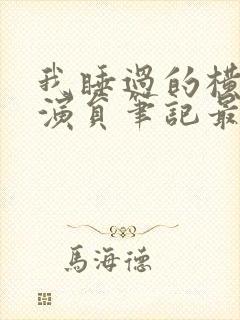 我睡過的橫
演員筆記最
馬海德